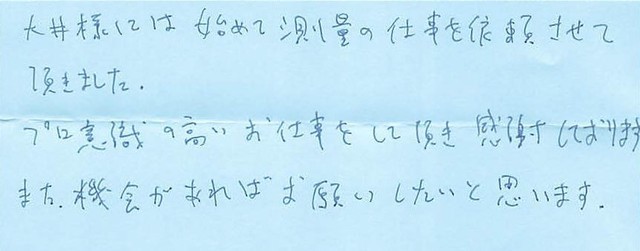 大井様には始めて測量の仕事を依頼させて
頂きました.
プロ意識の高いお仕事をして頂き感謝しております
また.機会があればお願いしたいと思います.